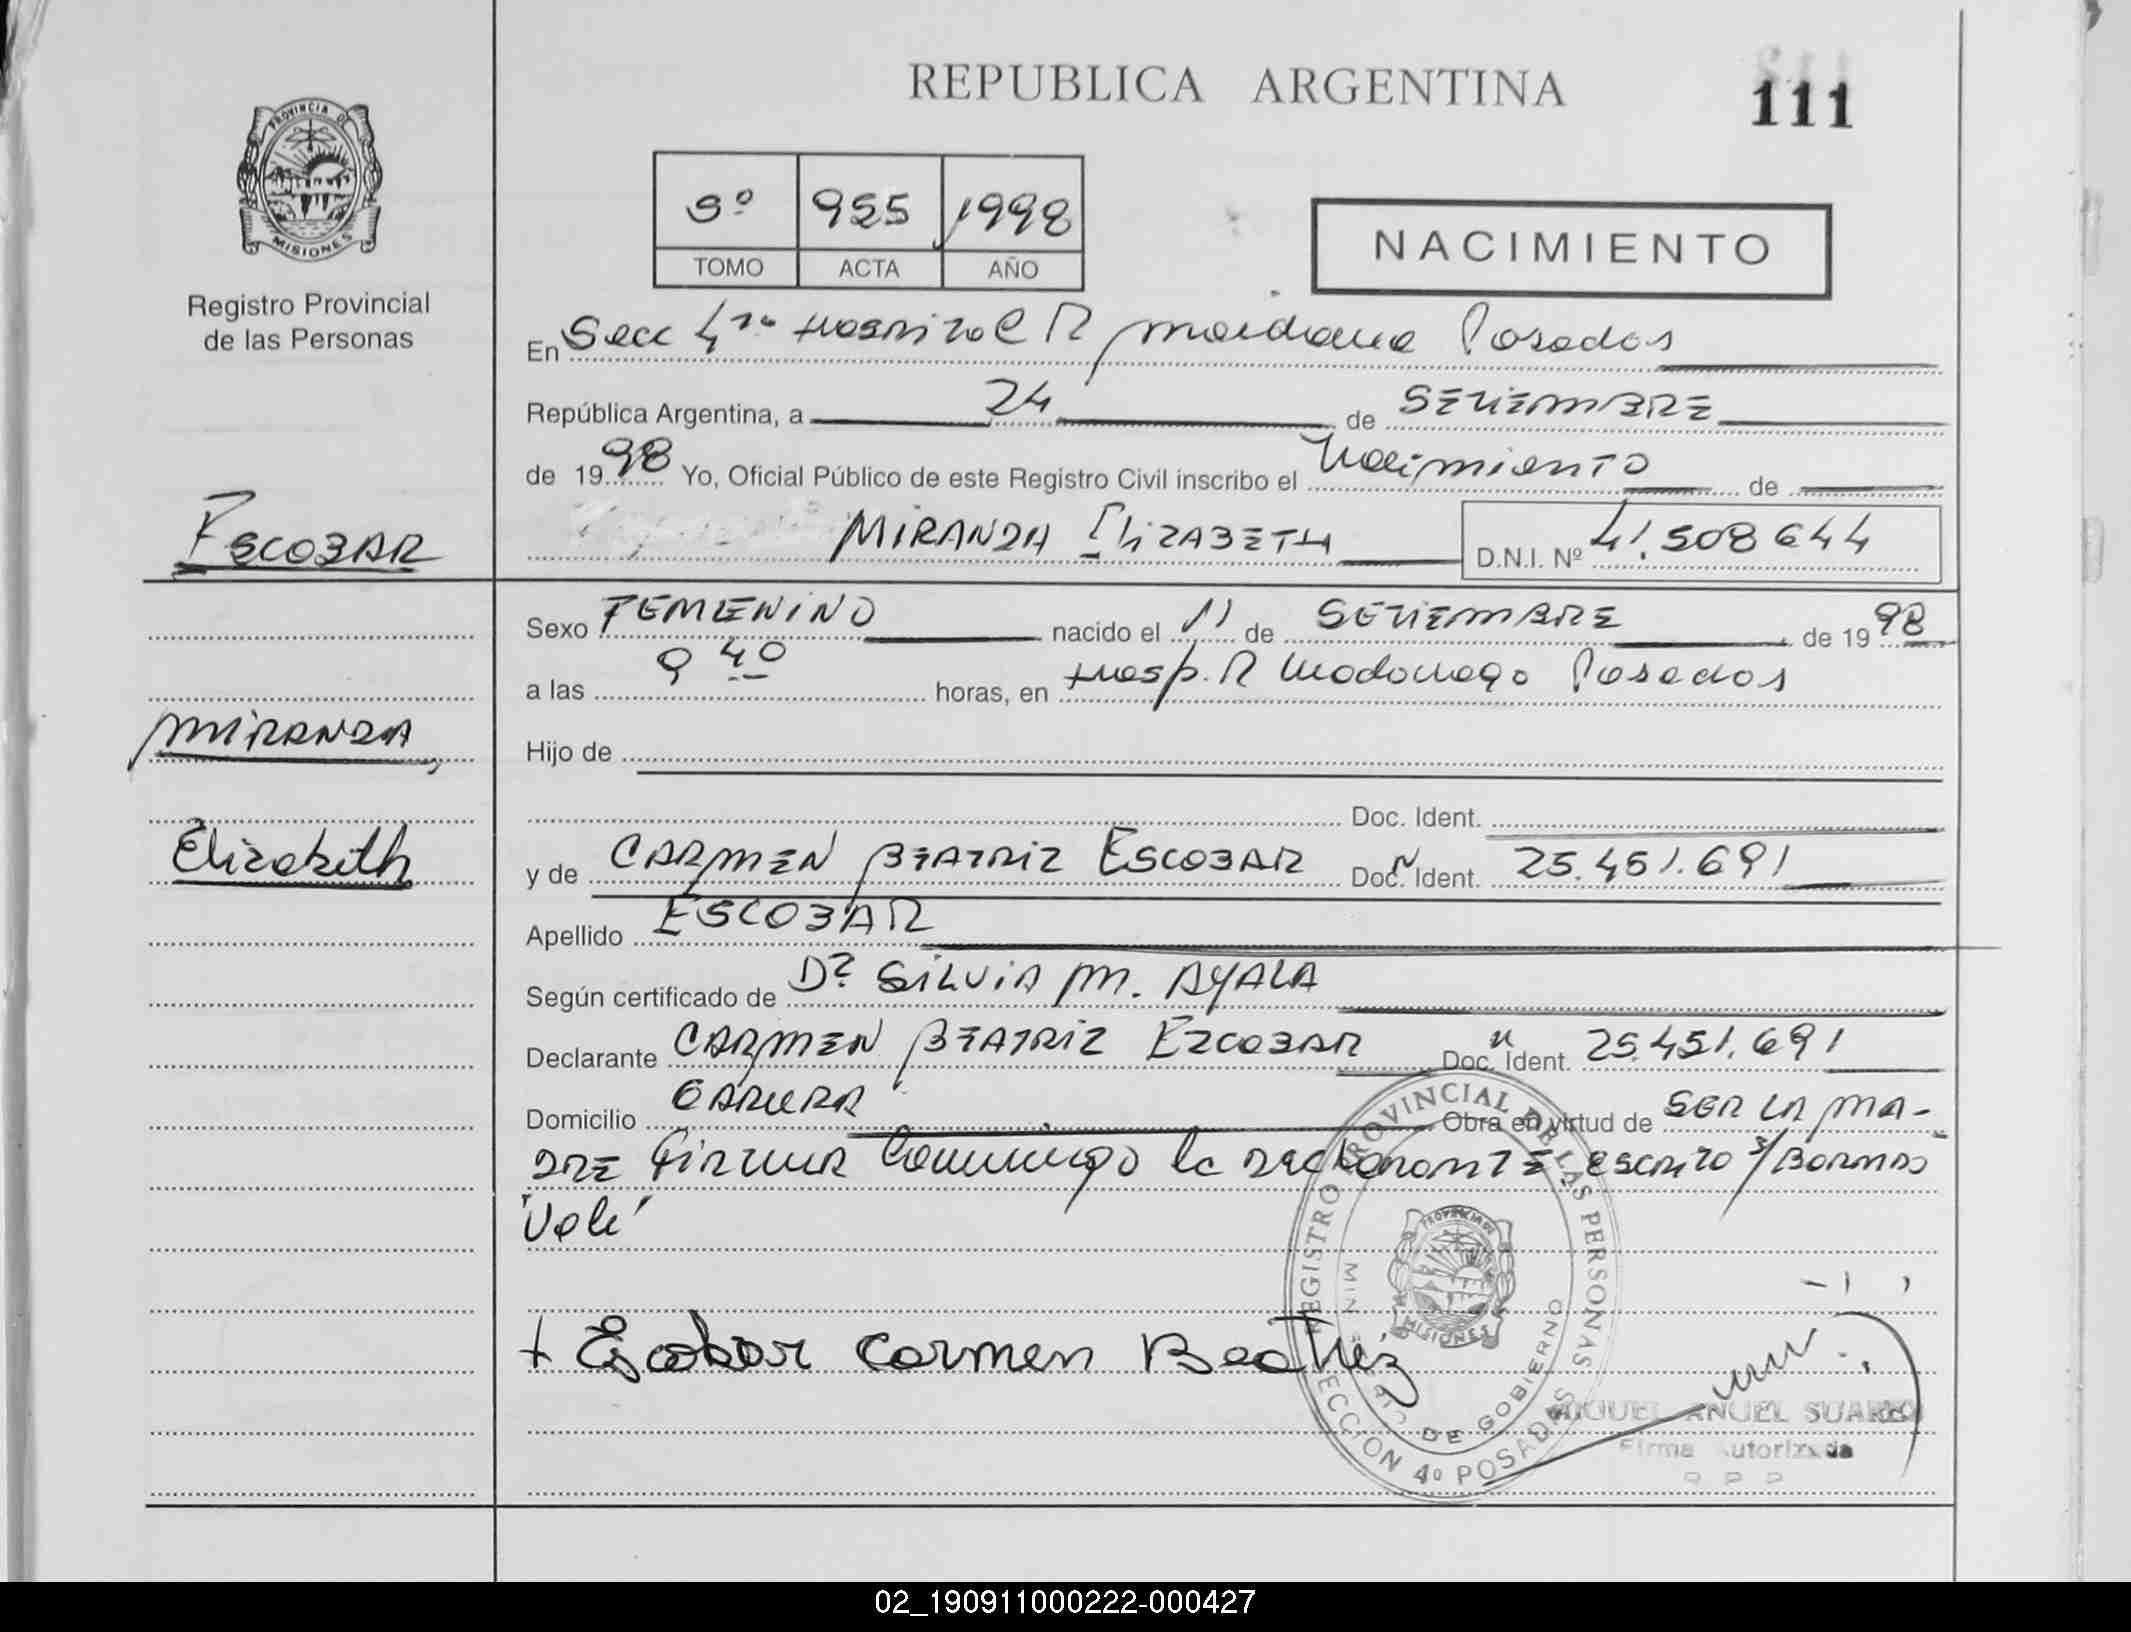 REPUBLICA ARGENTINA
111
PROVINCIA DE
MISIONES
Registro Provincial
de las Personas
3º 955 1998
TOMO ACTA AÑO
NACIMIENTO
En Secc 4ta Hospital R Madariaga Posadas
República Argentina, a 24 de SETIEMBRE
de 1998 Yo, Oficial Público de este Registro Civil inscribo el Nacimiento de
MIRANDA ELIZABETH D.N.I. Nº 41.508644
ESCOBAR
MIRANDA
Elizabeth
Sexo FEMENINO nacido el 11 de SETIEMBRE de 1998
a las 9 40 horas, en Hosp. R Madariaga Posadas
Hijo de
Doc. Ident.
y de CARMEN BEATRIZ ESCOBAR Doc. Ident. 25.451.691
Apellido ESCOBAR
Según certificado de Dª SILVIA M. AYALA
Declarante CARMEN BEATRIZ EZCOBAR Doc. Ident. 25.451.691
Domicilio GARUPA Obra en virtud de SER LA MA-
DRE FIRMA Conmigo la DECLARANTE escrito s/ BORRADO
"Vale"
+ Escobar Carmen Beatriz
REGISTRO PROVINCIAL DE LAS PERSONAS
DE GOBIERNO
PROVINCIA DE
MISIONES
SECCION 4º POSADAS
MIGUEL ANGEL SUAREZ
Firma Autorizada
02_190911000222-000427